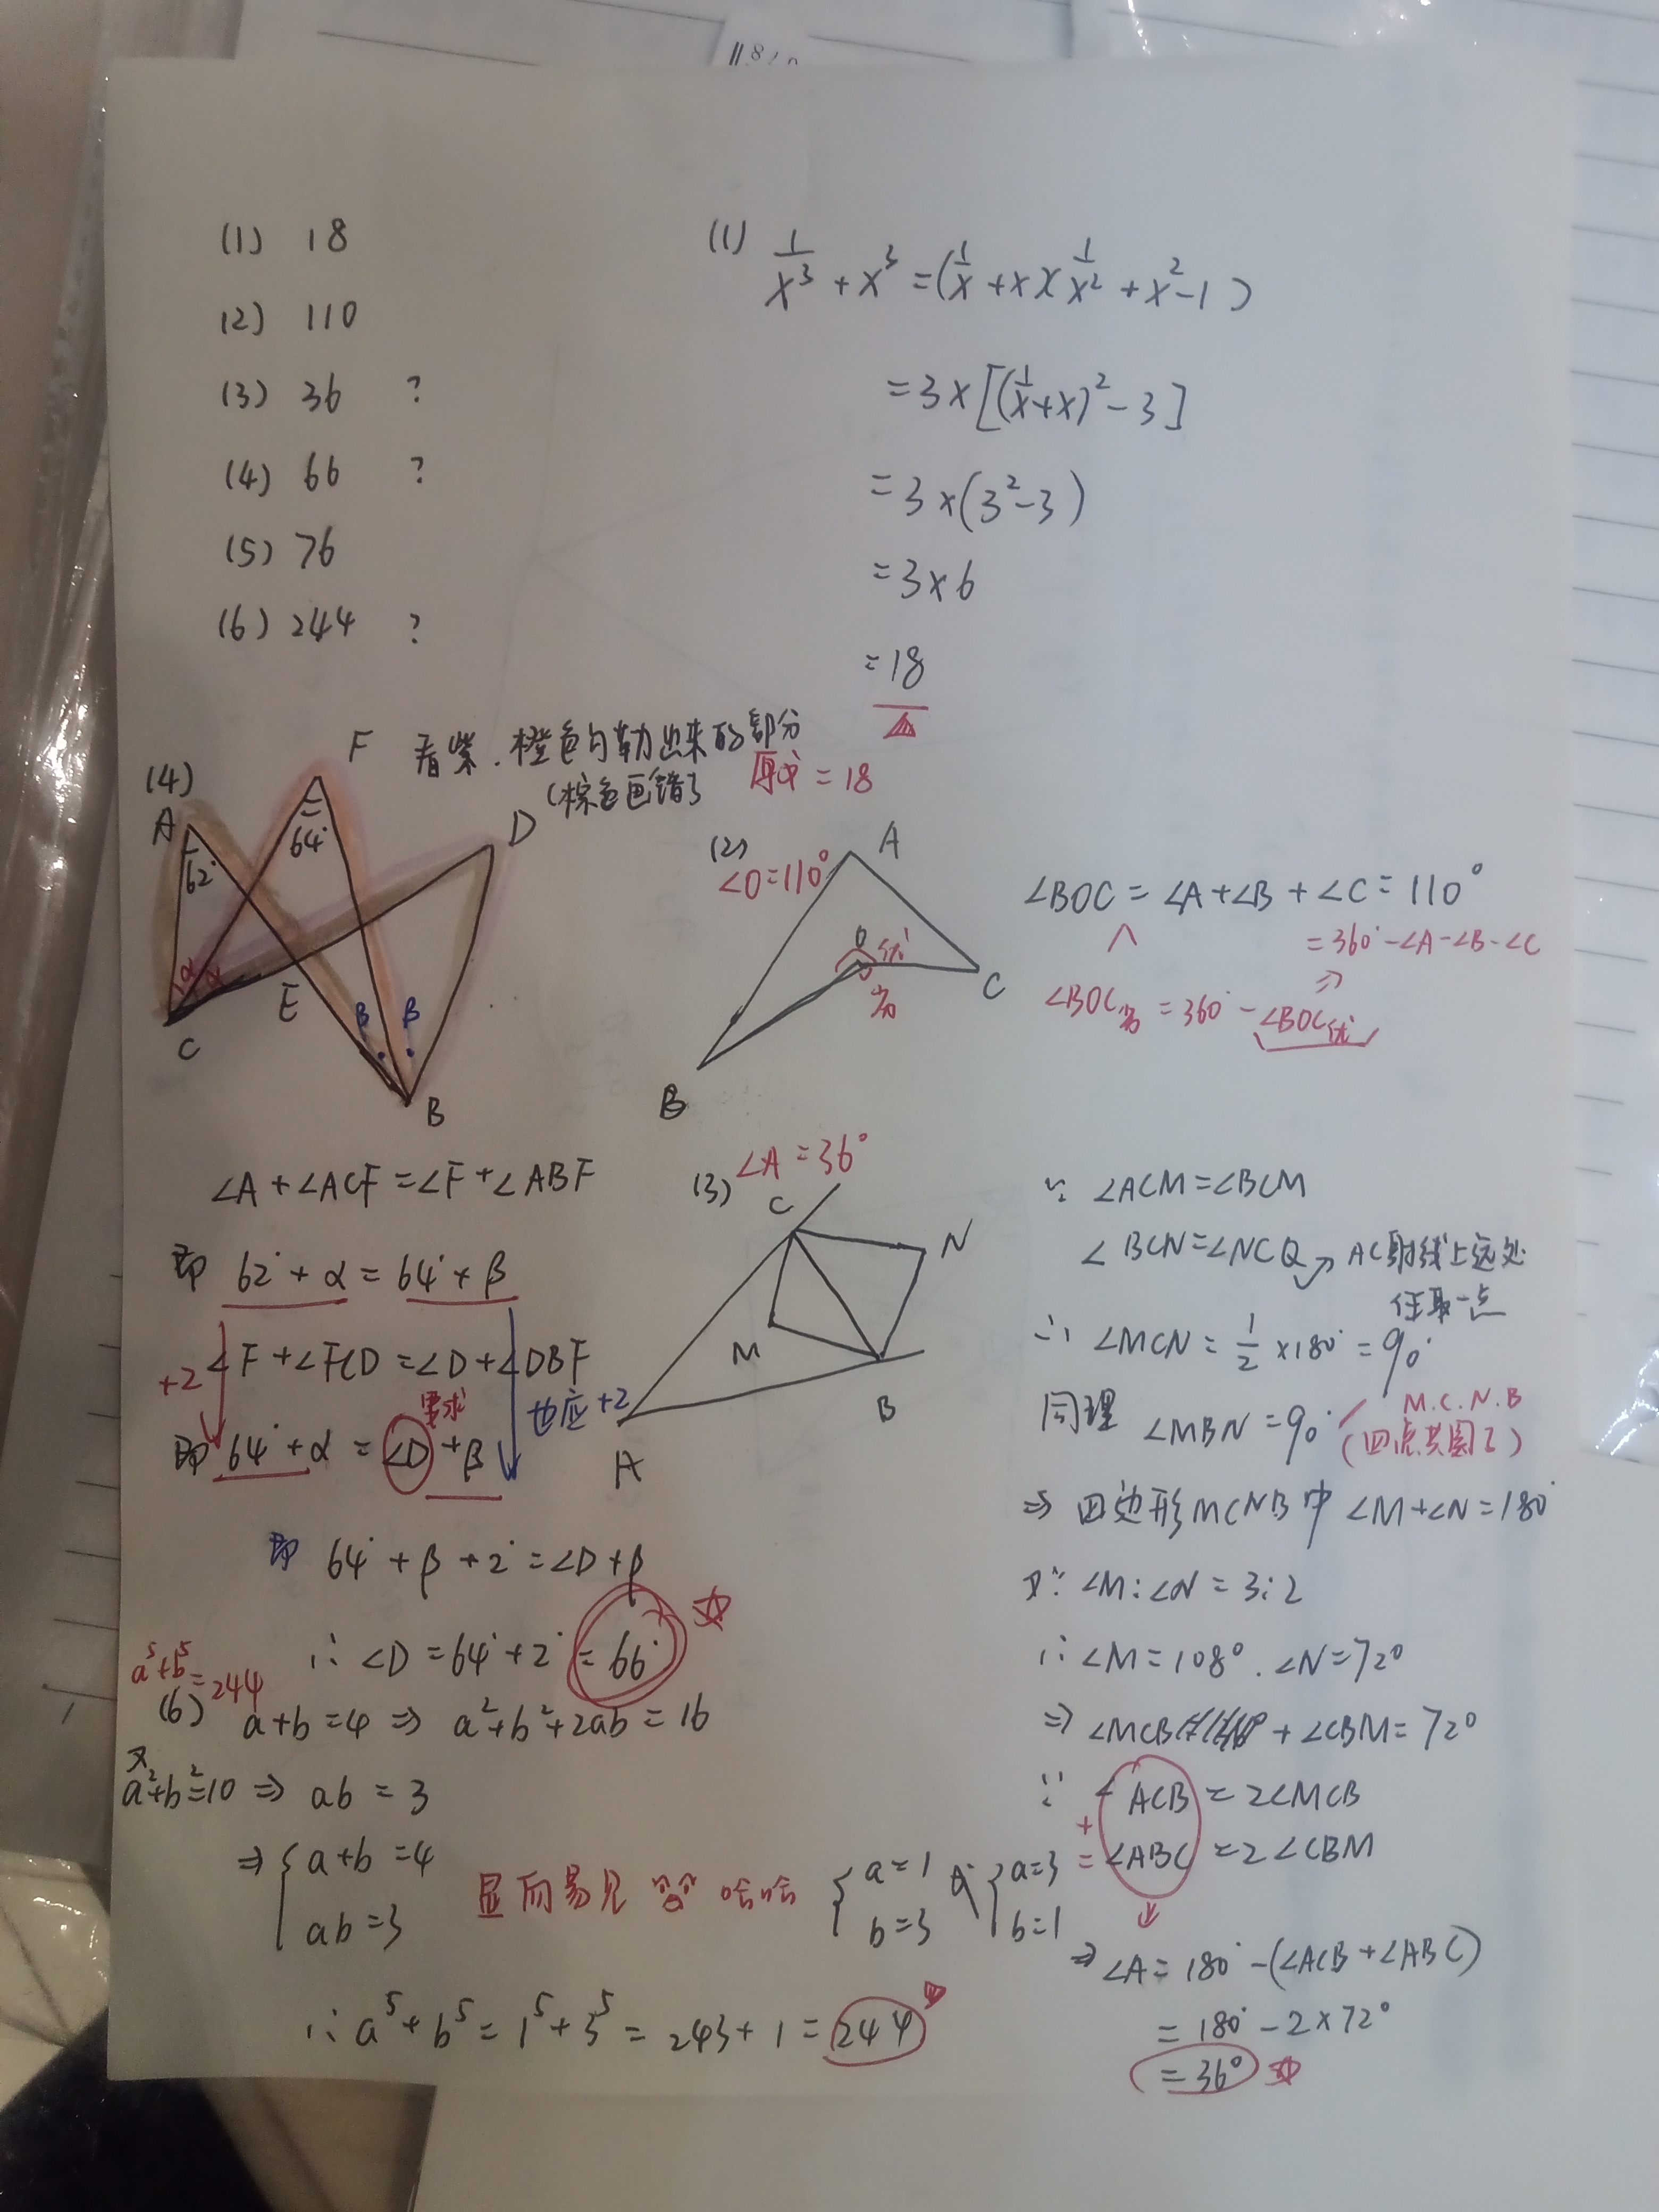 11.8
(1) 18
(2) 110
(3) 36 ?
(4) 66 ?
(5) 76
(6) 244 ?
(1) 1/x³ + x³ = (1/x + x)(1/x² + x² - 1)
= 3×[(1/x + x)² - 3]
= 3×(3² - 3)
= 3×6
= 18
原式 = 18
(4)
看紫.橙色勾勒出来的部分
(棕色画错了
A F D
62° 64°
α α
E β β
C B
∠A + ∠ACF = ∠F + ∠ABF
即 62° + α = 64° + β
+2 ∠F + ∠FCD = ∠D + ∠DBF
要求 也应+2
即 64° + α = ∠D + β
即 64° + β + 2° = ∠D + β
∴ ∠D = 64° + 2° = 66°
(2)
∠O = 110°
A
O 优
劣 C
B
∠BOC = ∠A + ∠B + ∠C = 110°
= 360° - ∠A - ∠B - ∠C
∠BOC劣 = 360° - ∠BOC优
(3) ∠A = 36°
C N
M
A B
∵ ∠ACM = ∠BCM
∠BCN = ∠NCQ → AC射线上远处
任取一点
∴ ∠MCN = 1/2 × 180° = 90°
同理 ∠MBN = 90° M.C.N.B
(四点共圆了)
⇒ 四边形MCNB中 ∠M + ∠N = 180°
又∵ ∠M : ∠N = 3 : 2
∴ ∠M = 108° . ∠N = 72°
⇒ ∠MCB + ∠CBM = 72°
∵ ∠ACB = 2∠MCB
+
= ∠ABC = 2∠CBM
⇒ ∠A = 180° - (∠ACB + ∠ABC)
= 180° - 2×72°
= 36°
a⁵ + b⁵ = 244
(6) a + b = 4 ⇒ a² + b² + 2ab = 16
又
a² + b² = 10 ⇒ ab = 3
⇒ { a + b = 4
ab = 3
显而易见 哈哈
{ a = 1
b = 3
或 { a = 3
b = 1
∴ a⁵ + b⁵ = 1⁵ + 3⁵ = 243 + 1 = 244